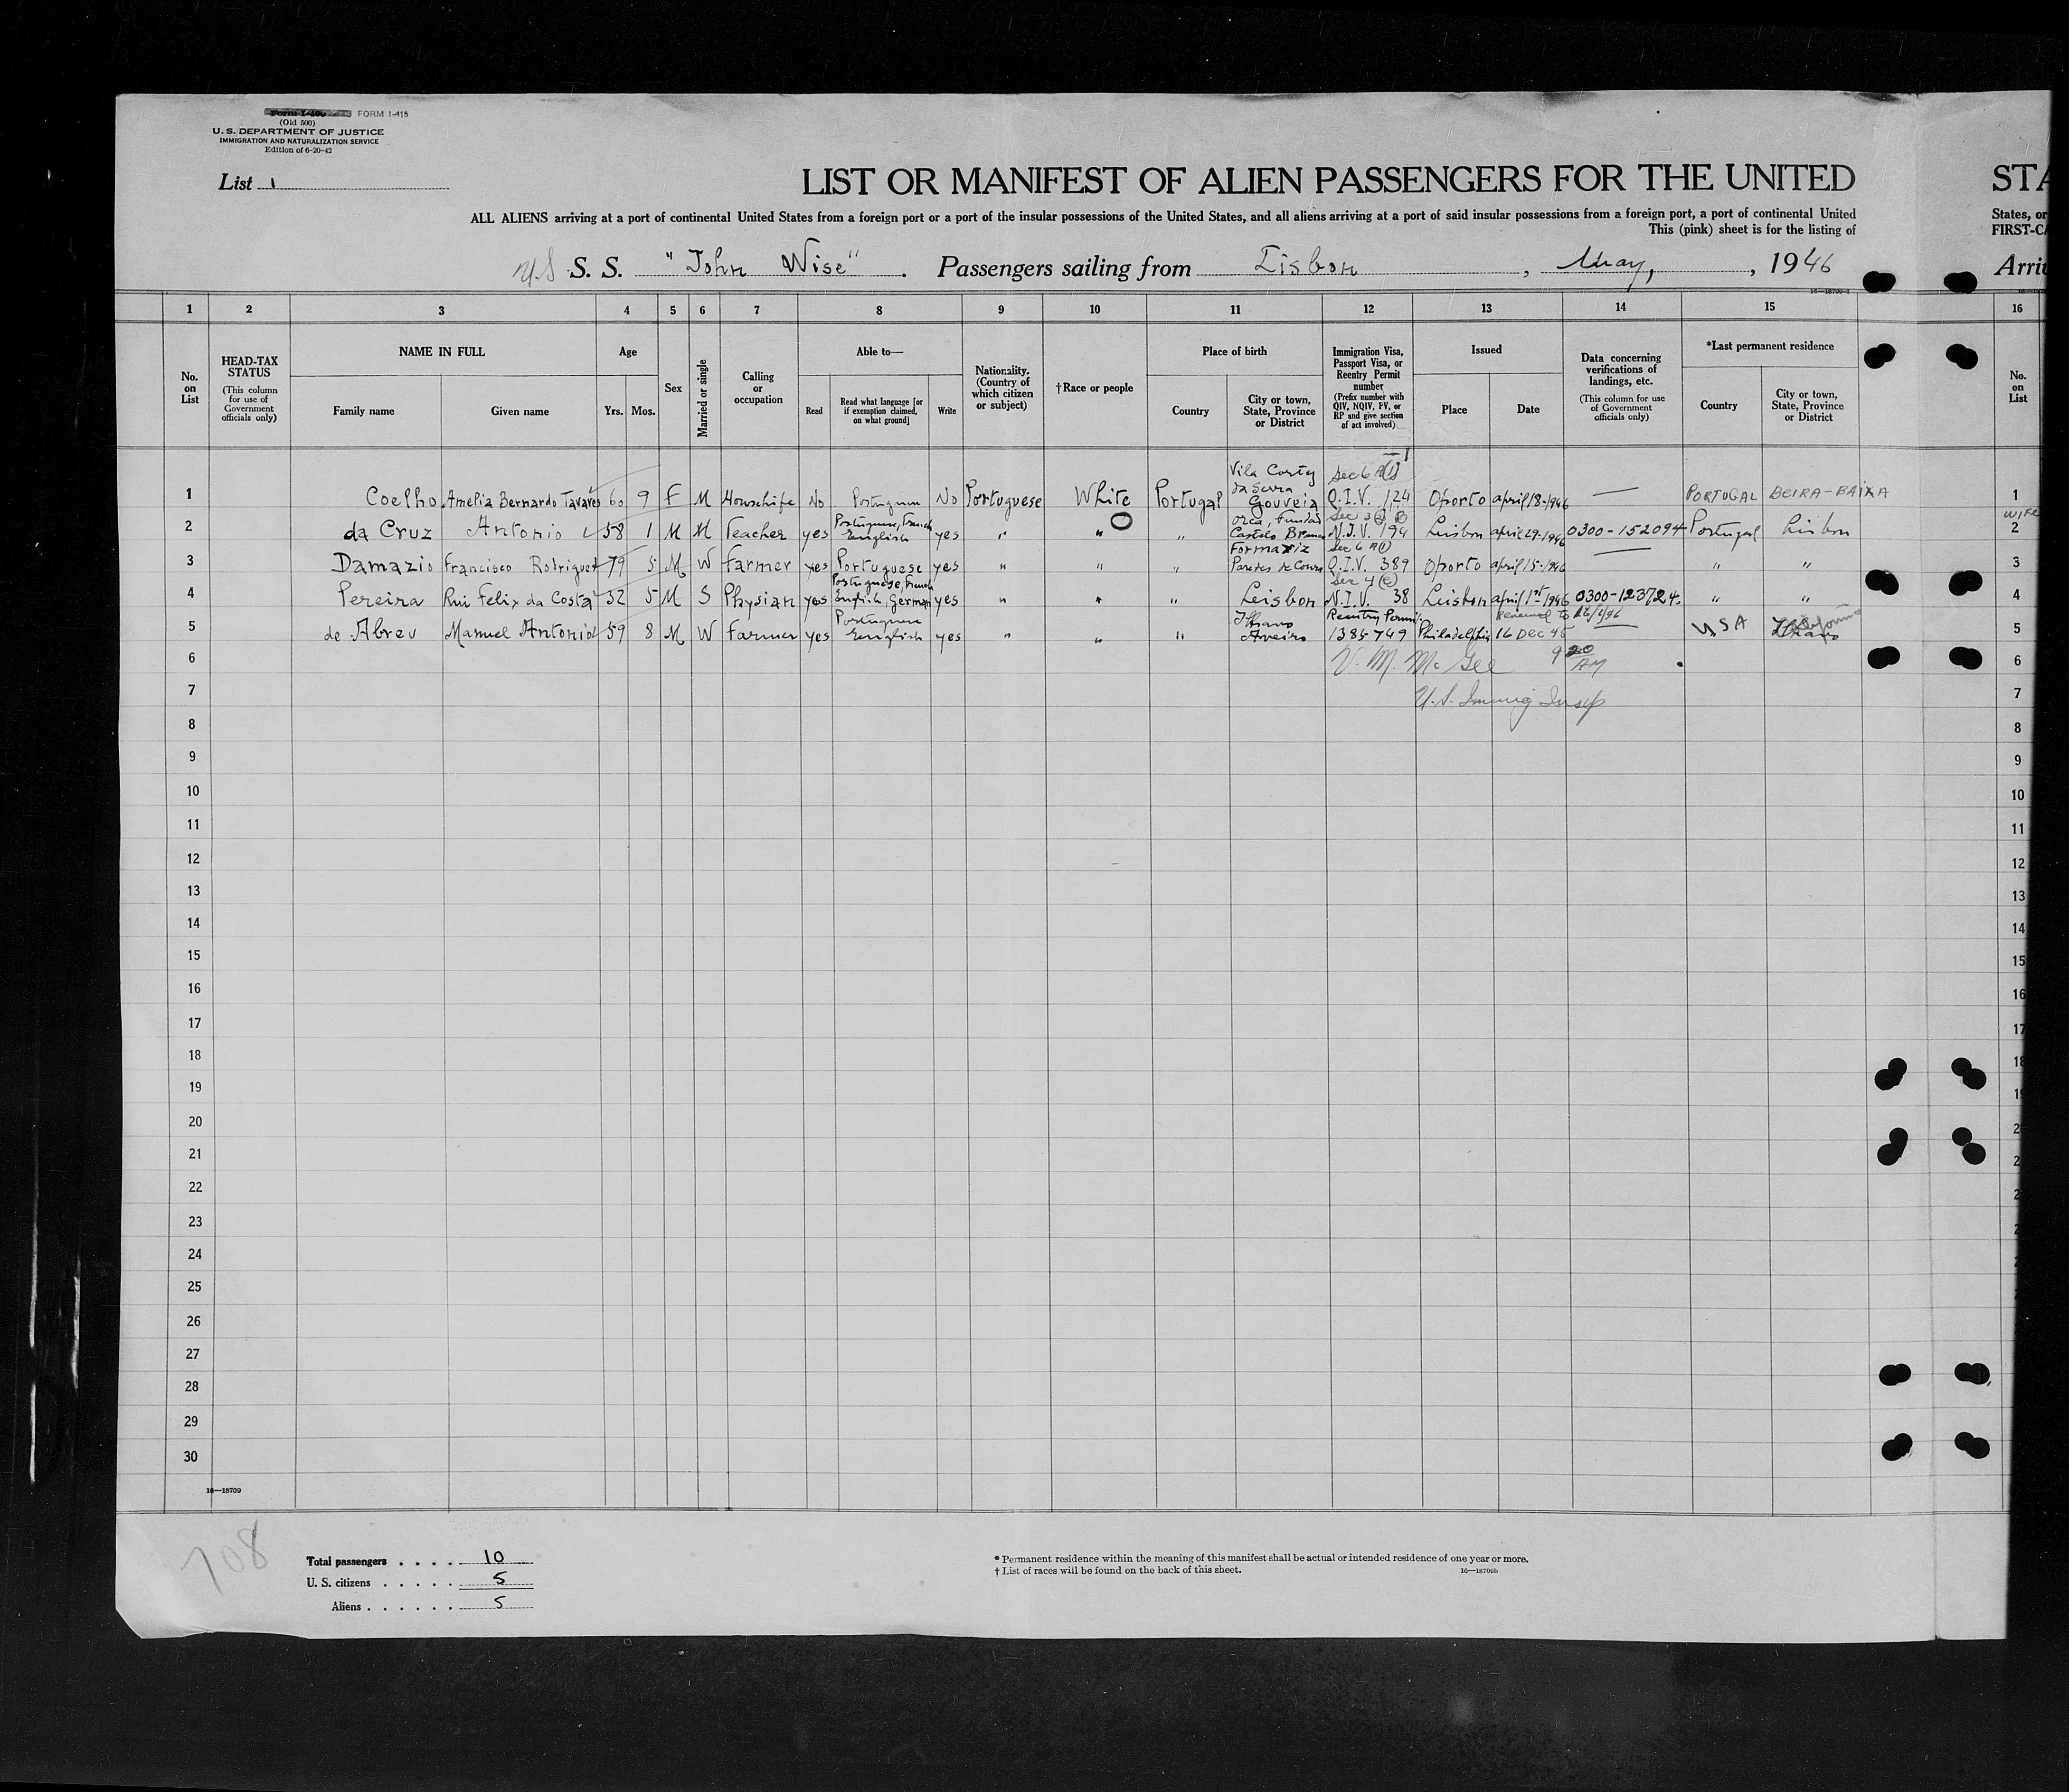 Form I-400 FORM I-415
(Old 500)
U. S. DEPARTMENT OF JUSTICE
IMMIGRATION AND NATURALIZATION SERVICE
Edition of 6-20-42
List 1
LIST OR MANIFEST OF ALIEN PASSENGERS FOR THE UNITED STA
ALL ALIENS arriving at a port of continental United States from a foreign port or a port of the insular possessions of the United States, and all aliens arriving at a port of said insular possessions from a foreign port, a port of continental United States, or
This (pink) sheet is for the listing of FIRST-CA
S. S. "John Wise". Passengers sailing from Lisbon, May, 1946 Arri
16—18709-1
1 2 3 4 5 6 7 8 9 10 11 12 13 14 15 16
No. on List
HEAD-TAX STATUS (This column for use of Government officials only)
NAME IN FULL Family name Given name
Age Yrs. Mos.
Sex
Married or single
Calling or occupation
Able to— Read Read what language [or if exemption claimed, on what ground] Write
Nationality. (Country of which citizen or subject)
†Race or people
Place of birth Country City or town, State, Province or District
Immigration Visa, Passport Visa, or Reentry Permit number (Prefix number with QIV, NQIV, PV, or RP and give section of act involved)
Issued Place Date
Data concerning verifications of landings, etc. (This column for use of Government officials only)
*Last permanent residence Country City or town, State, Province or District
No. on List
1 Coelho Amelia Bernardo Tavares 60 9 F M Housewife No Portuguese No Portuguese White Portugal Vila Cortez da Serra Gouveia Sec 6 A(1) Q.I.V. 124 Oporto april 18-1946 — PORTUGAL BEIRA-BAIXA 1
WIFE
2 da Cruz Antonio 58 1 M M Teacher yes Portuguese, French English yes " " " Orca, Fundão Castelo Branco N.I.V. 194 Lisbon april 29-1946 0300-152094 Portugal Lisbon 2
3 Damazio Francisco Rodrigues 79 5 M W Farmer yes Portuguese yes " " " Formariz Paredes de Coura Sec 6 A(1) Q.I.V. 389 Oporto april 15-1946 — " " 3
4 Pereira Rui Felix da Costa 32 5 M S Physian yes Portuguese, French English, German yes " " " Leisbon Sec 4(e) N.I.V. 38 Lisbon april 1st 1946 0300-123724 " " 4
5 de Abreu Manuel Antonio 59 8 M W Farmer yes Portuguese English yes " " " Ilhavo Aveiro Reentry Permit 1385749 Philadelphia 16 Dec 45 Renewed to — USA Ilhavo 5
6 V. M. McGee 9 20 AM 6
7 U.S. Immig Insp 7
8 8
9 9
10 10
11 11
12 12
13 13
14 14
15 15
16 16
17 17
18 18
19 19
20 2
21 2
22 2
23 2
24 2
25 2
26
27
28
29
30
16—18709
708
Total passengers . . . . 10
U. S. citizens . . . . . 5
Aliens . . . . . . 5
* Permanent residence within the meaning of this manifest shall be actual or intended residence of one year or more.
† List of races will be found on the back of this sheet. 16—18709b